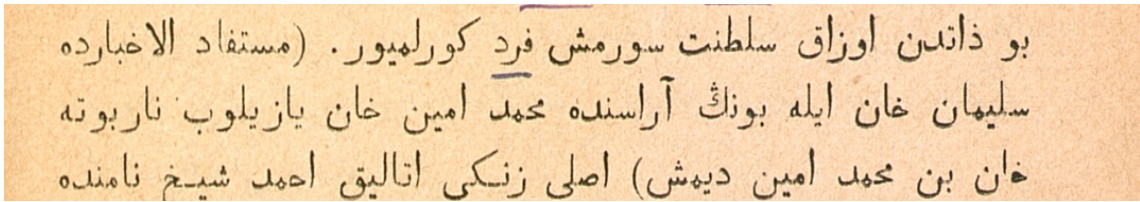 بو ذاتدن اوزاق سلطنت سورمش فرد كورلميور . (مستفاد الاخبارده
سليمان خان ايله بونڭ آراسنده محمد امين خان يازيلوب ناربوته
خان بن محمد امين ديمش) اصلى زنكى اتاليق احمد شيخ نامنده